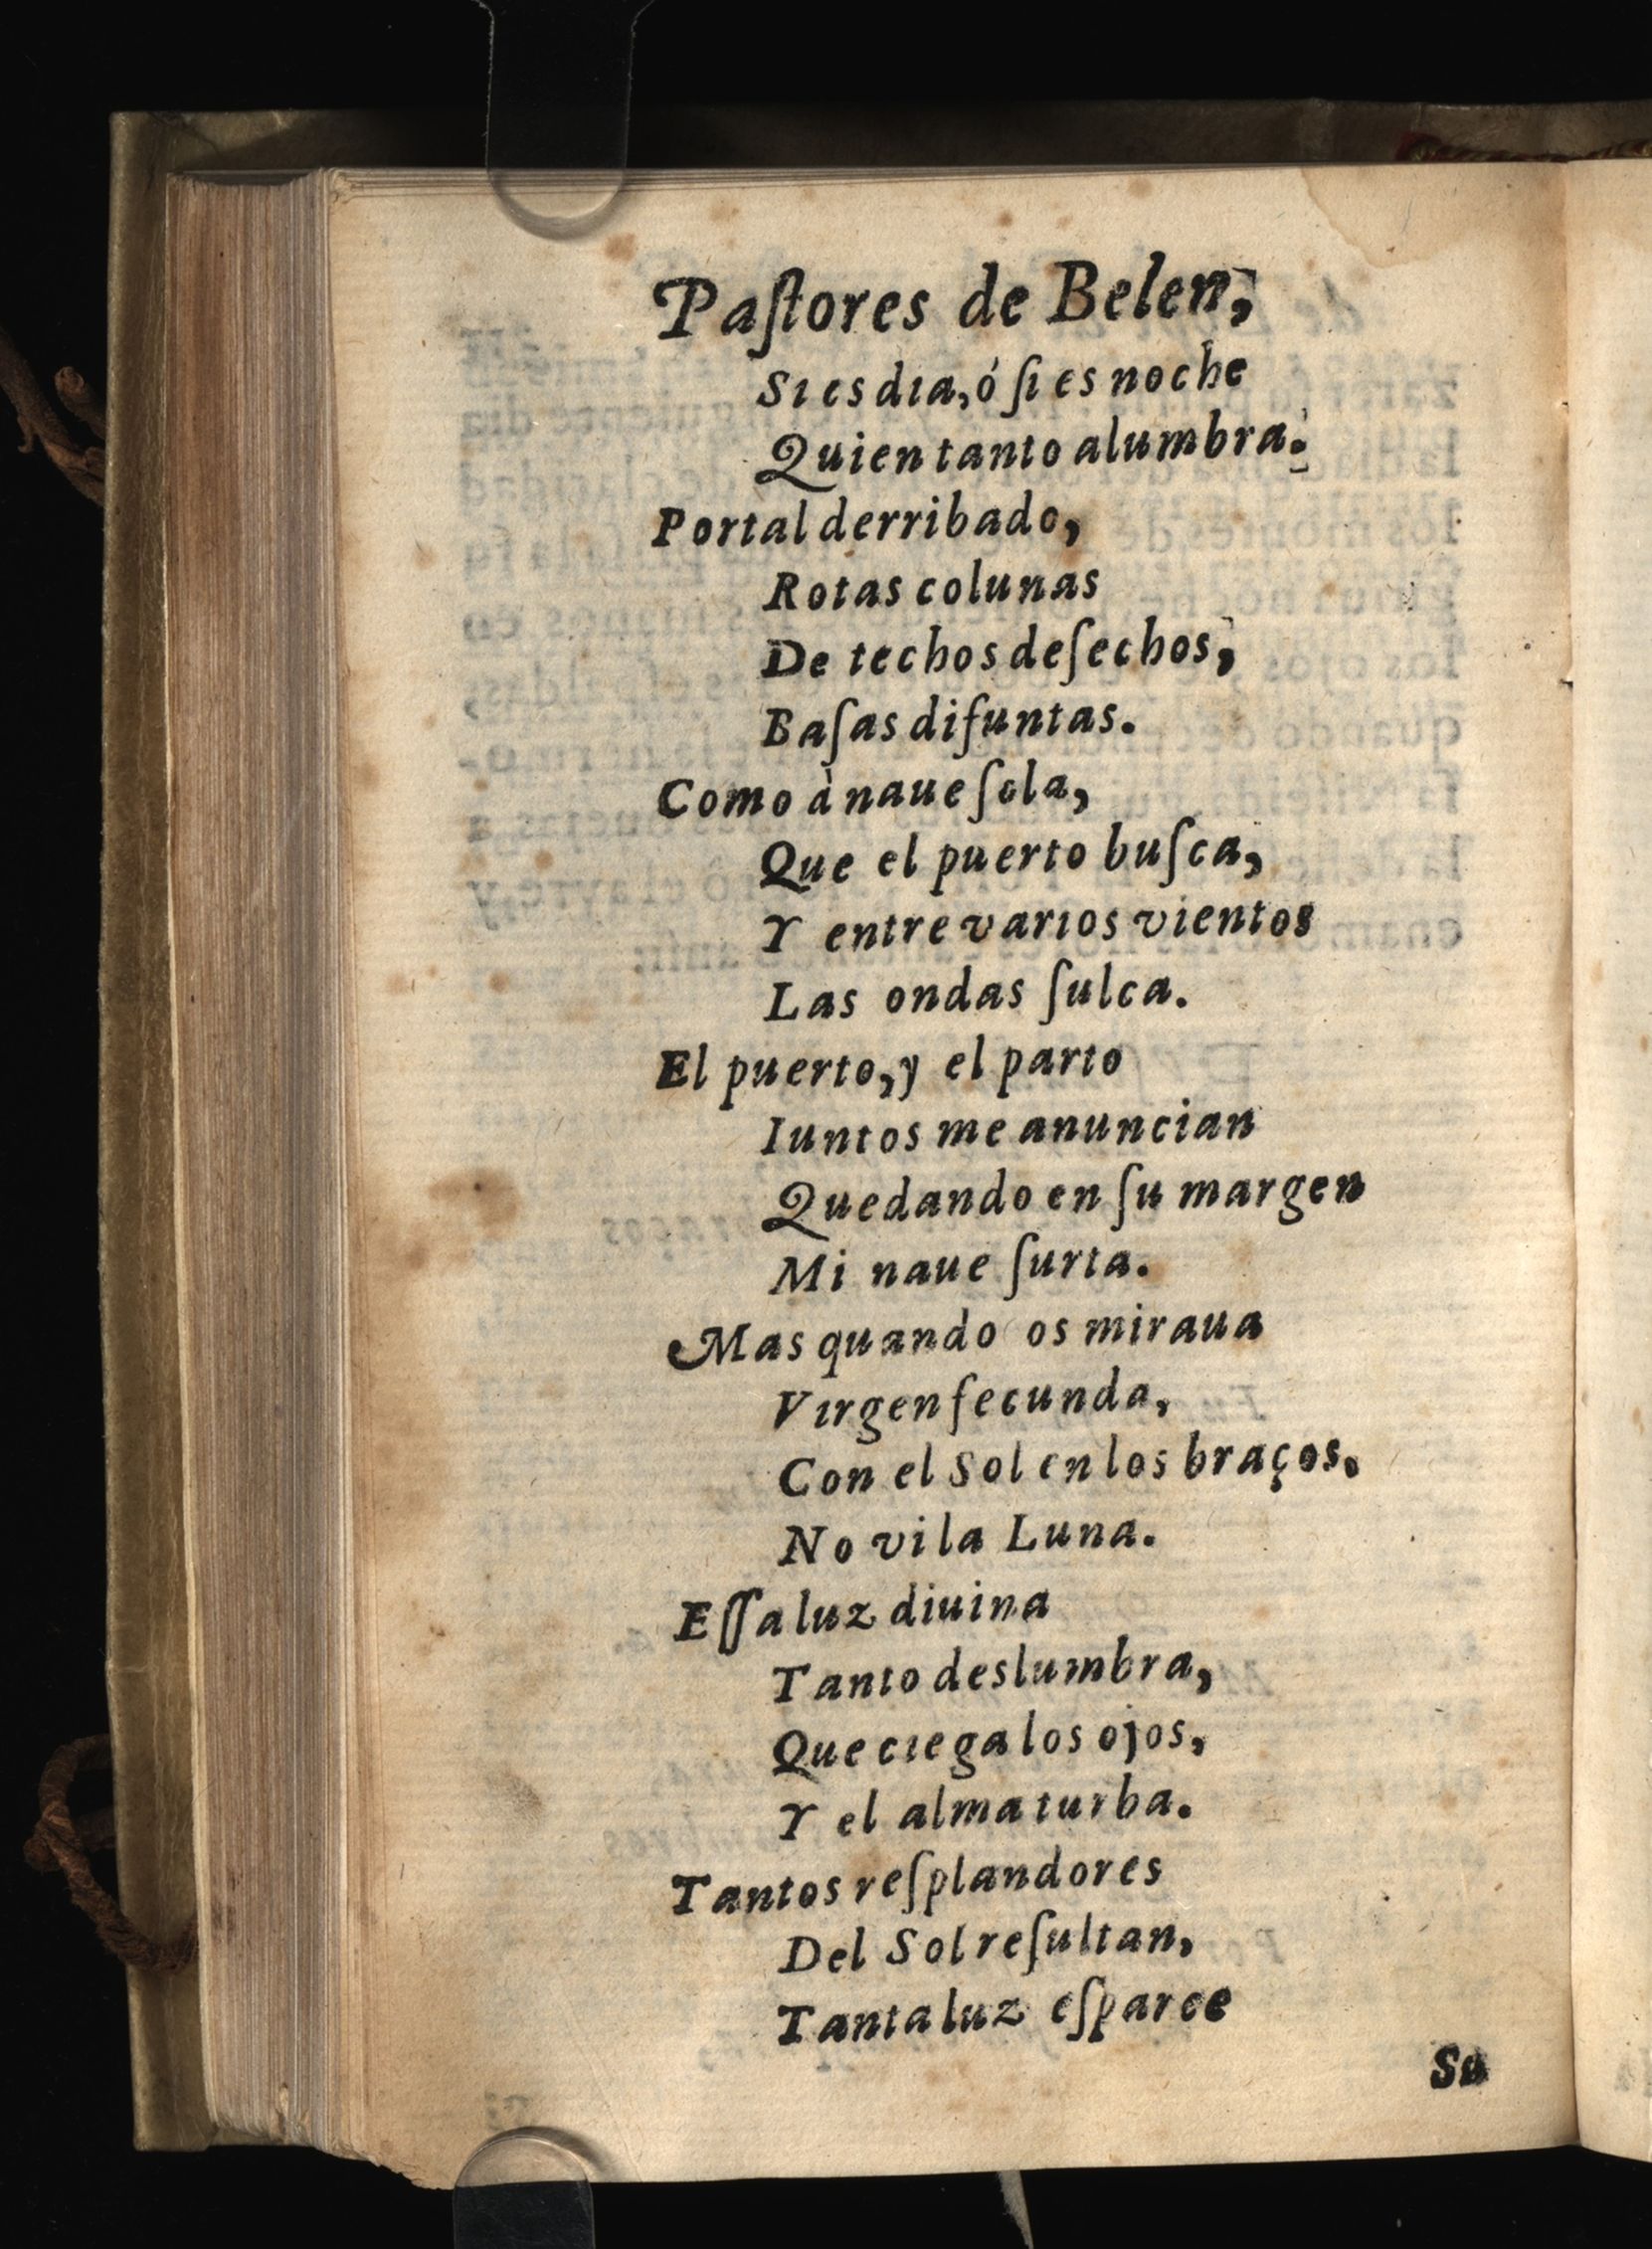 Paſtores de Belen,
Si es dia, ó ſi es noche
Quien tanto alumbra.
Portal derribado,
Rotas colunas
De techos deſechos,
Baſas difuntas.
Como à naue ſola,
Que el puerto buſca,
Y entre varios vientos
Las ondas ſulca.
El puerto, y el parto
Iuntos me anuncian
Quedando en ſu margen
Mi naue ſurta.
Mas quando os miraua
Virgen fecunda,
Con el Sol en los braços.
No vi la Luna.
Eſſa luz diuina
Tanto deslumbra,
Que ciega los ojos,
Y el alma turba.
Tantos reſplandores
Del Sol reſultan,
Tanta luz eſparce
Su